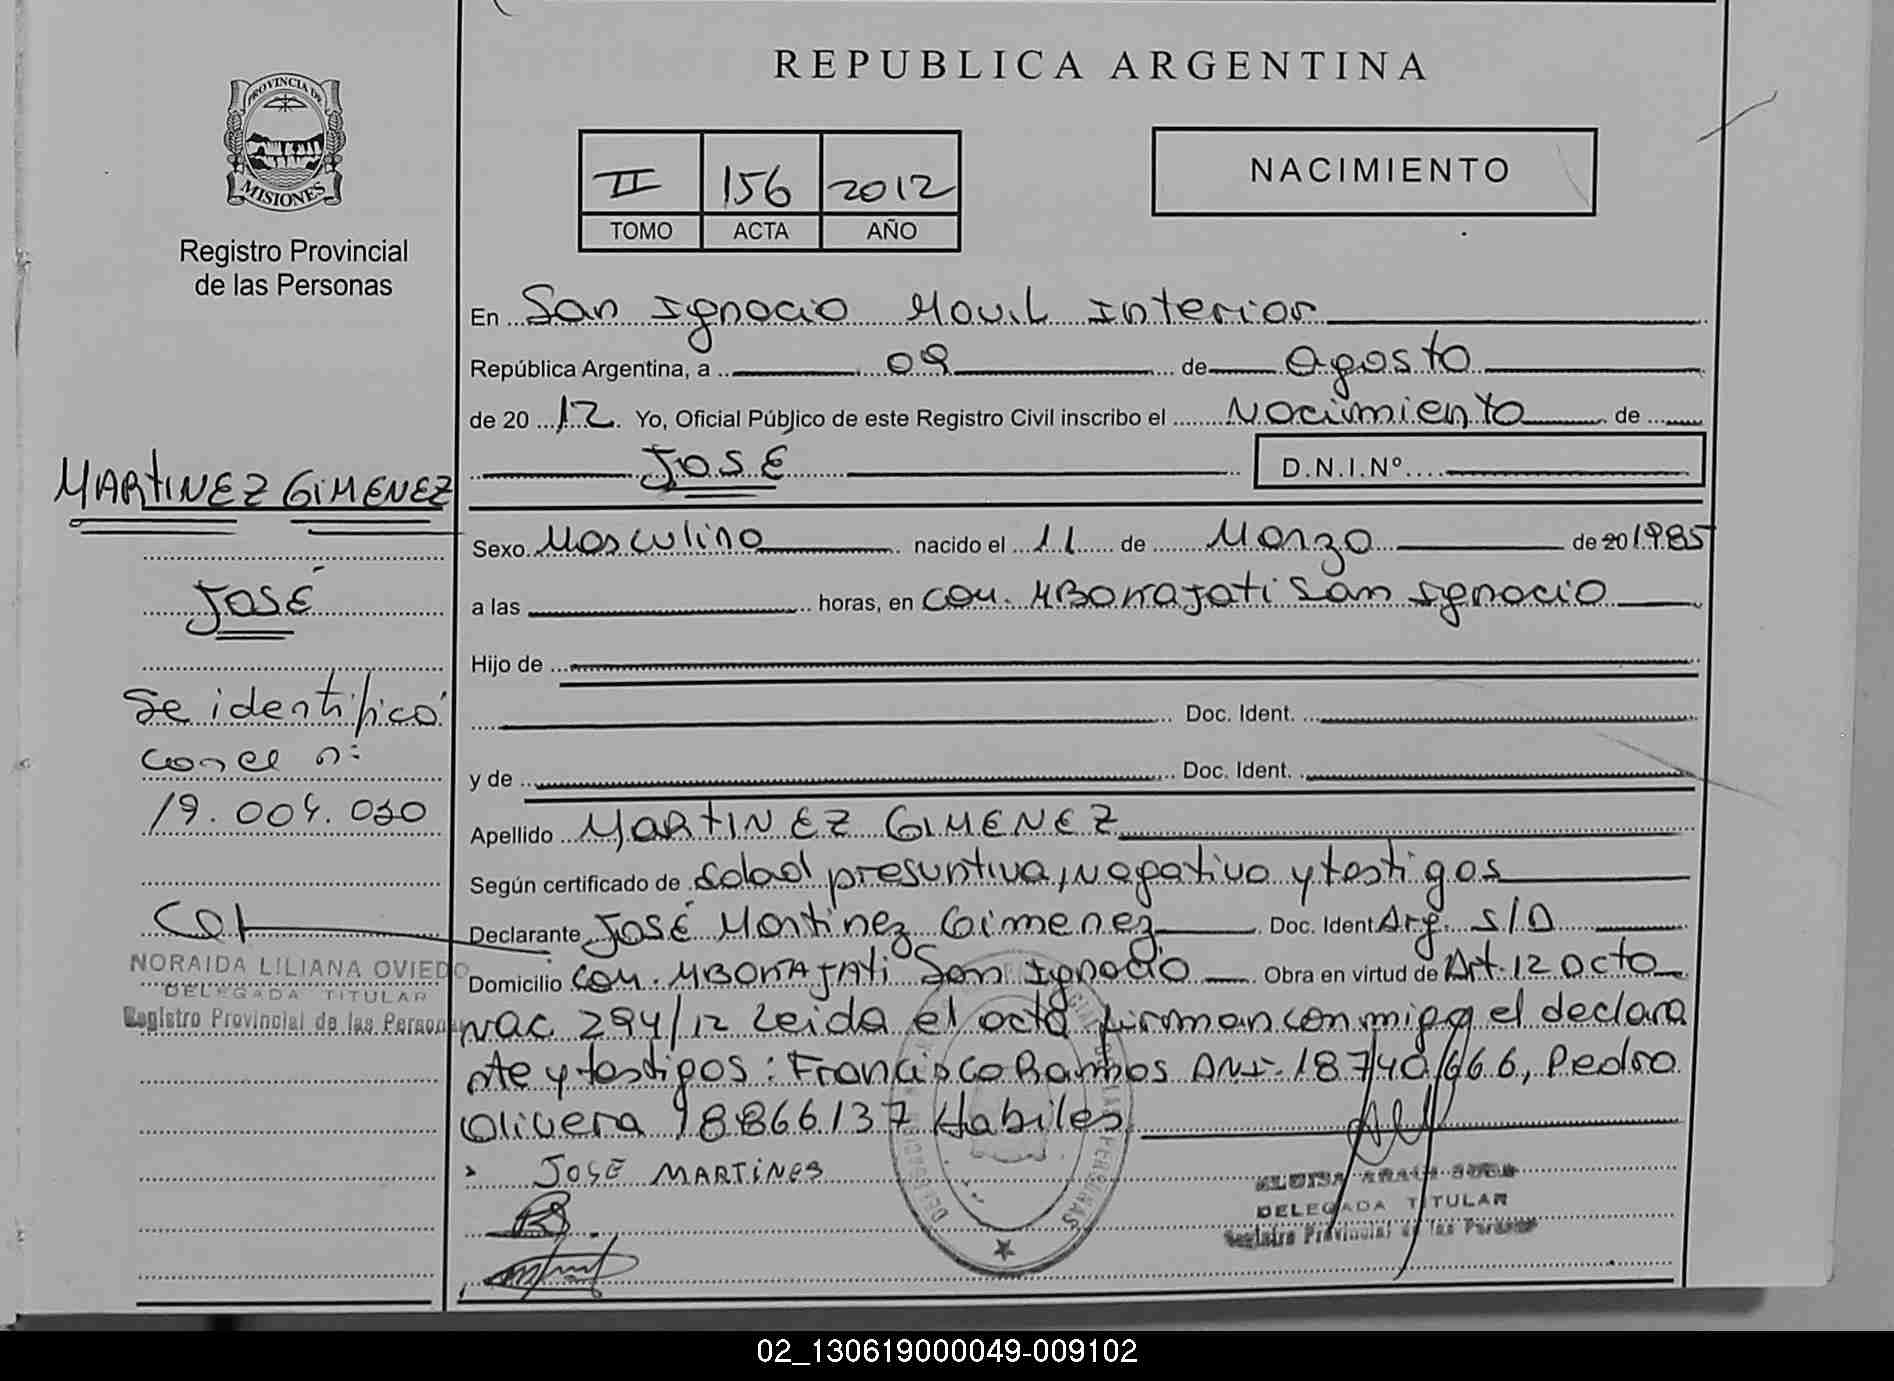 REPUBLICA ARGENTINA
PROVINCIA DE
MISIONES
Registro Provincial
de las Personas
II 156 2012
TOMO ACTA AÑO
NACIMIENTO
En San Ignacio Movil Interior
República Argentina, a 09 de Agosto
de 20 12. Yo, Oficial Público de este Registro Civil inscribo el Nacimiento de
JOSÉ D.N.I.Nº
MARTINEZ GIMENEZ
JOSÉ
Se identificó
con el nº
19.004.030
NORAIDA LILIANA OVIEDO
DELEGADA TITULAR
Registro Provincial de las Personas
Sexo Masculino nacido el 11 de Marzo de 20 1985
a las horas, en Com. MBORRAJATI San Ignacio
Hijo de
Doc. Ident.
y de Doc. Ident.
Apellido MARTINEZ GIMENEZ
Según certificado de Edad presuntiva, negativo y testigos
Declarante José Martinez Gimenez Doc. Ident Arg. S/D
Domicilio Com. MBORRAJATI San Ignacio Obra en virtud de Art. 12 acta
nac 294/12 Leida el acta firman conmigo el declara
nte y testigos: Francisco Ramos DNI. 18740666, Pedro
Olivera 18866137 Habiles
JOSÉ MARTINES
DELEGADA TITULAR
Registro Provincial de las Personas
02_130619000049-009102